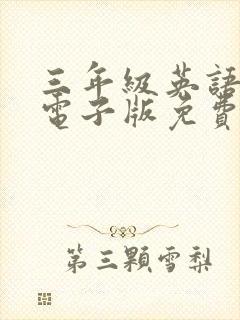 三年級英語
電子版免費
第三顆雪梨